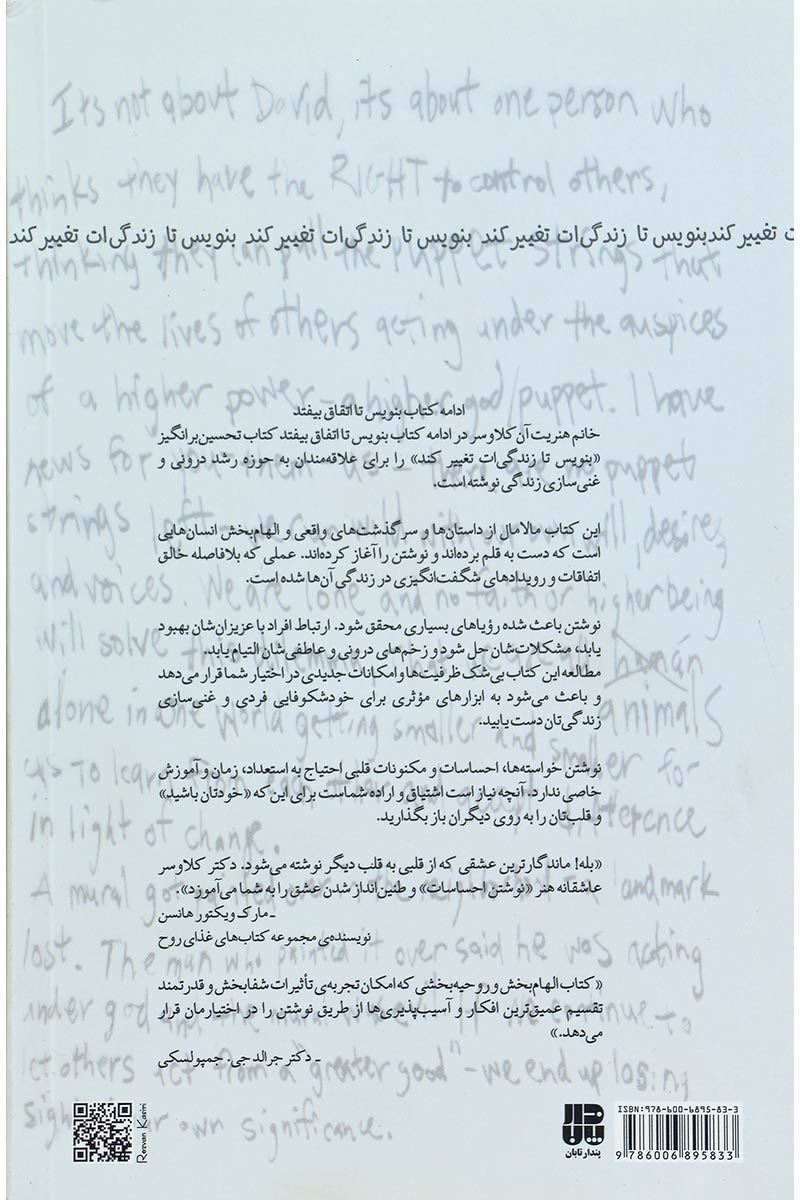 Its not about David, its about one person who
thinks they have the RIGHT to control others,
ت تغییر کند بنویس تا زندگی‌ات تغییر کند بنویس تا زندگی‌ات تغییر کند بنویس تا زندگی‌ات تغییر کند
thinking they can pull the puppet strings that
move the lives of others acting under the auspices
of a higher power - a higher god/puppet. I have
ادامه کتاب بنویس تا اتفاق بیفتد
خانم هنریت آن کلاوسر در ادامه کتاب بنویس تا اتفاق بیفتد کتاب تحسین‌برانگیز
«بنویس تا زندگی‌ات تغییر کند» را برای علاقه‌مندان به حوزه رشد درونی و
غنی‌سازی زندگی نوشته است.
news for you puppet
strings left will, desires
این کتاب مالامال از داستان‌ها و سرگذشت‌های واقعی و الهام‌بخش انسان‌هایی
است که دست به قلم برده‌اند و نوشتن را آغاز کرده‌اند. عملی که بلافاصله خالق
اتفاقات و رویدادهای شگفت‌انگیزی در زندگی آن‌ها شده است.
and voices. We are lone and no faith or higher being
نوشتن باعث شده رؤیاهای بسیاری محقق شود. ارتباط افراد با عزیزان‌شان بهبود
یابد، مشکلات‌شان حل شود و زخم‌های درونی و عاطفی‌شان التیام یابد.
مطالعه این کتاب بی‌شک ظرفیت‌ها و امکانات جدیدی در اختیار شما قرار می‌دهد
و باعث می‌شود به ابزارهای مؤثری برای خودشکوفایی فردی و غنی‌سازی
زندگی‌تان دست یابید.
will solve human
alone in the world getting smaller and smaller for animals
us to learn
نوشتن خواسته‌ها، احساسات و مکنونات قلبی احتیاج به استعداد، زمان و آموزش
خاصی ندارد. آنچه نیاز است اشتیاق و اراده شماست برای این که «خودتان باشید»
و قلب‌تان را به روی دیگران باز بگذارید.
in light of change.
«بله! ماندگارترین عشقی که از قلبی به قلب دیگر نوشته می‌شود. دکتر کلاوسر
عاشقانه هنر «نوشتن احساسات» و طنین‌انداز شدن عشق را به شما می‌آموزد».
ـ مارک ویکتور هانسن
نویسنده‌ی مجموعه کتاب‌های غذای روح
A mural landmark
lost. The man who painted it over said he was acting
«کتاب الهام‌بخش و روحیه‌بخشی که امکان تجربه‌ی تأثیرات شفابخش و قدرتمند
تقسیم عمیق‌ترین افکار و آسیب‌پذیری‌ها از طریق نوشتن را در اختیارمان قرار
می‌دهد.»
ـ دکتر جرالد جی. جمپولسکی
under god continue to
let others act from a "greater good" - we end up losing
sight our own significance.
Rezvan Karimi
پندار تابان
ISBN:978-600-6895-83-3
9 786006 895833